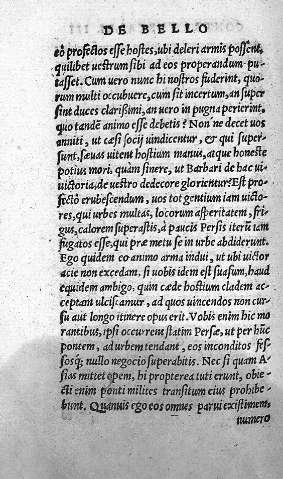 DE BELLO
eò profectos esse hostes, ubi deleri armis possent,
quilibet uestrum sibi ad eos properandum pu-
tasset. Cum uero nunc hi nostros fuderint, quo-
rum multi occubuere, cum sit incertum, an super
sint duces clarißimi, an uero in pugna perierint,
quo tandē animo esse debetis? Non ne decet uos
anniti, ut casi socij uindicentur, & qui super-
sunt, sæuas uitent hostium manus, atq; honeste
potius mori, quàm sinere, ut Barbari de hac ui
uictoria, de uestro dedecore glorientur? Est pro-
fecto erubescendum, uos tot gentium iam uicto-
res, qui urbes multas, locorum asperitatem, fri-
gus, calorem superastis, à paucis Persis iterū tam
fugatos esse, qui præ metu se in urbe abdiderunt.
Ego quidem eo animo arma indui, ut ubi uictor
acie non excedam. si uobis idem est suasum, haud
equidem ambigo, quin cæde hostium cladem ac-
ceptam ulciscamur, ad quos uincendos non cur-
su aut longo itinere opus erit. Vobis enim hic mo
rantibus, ipsi occurrent statim Persæ, ut per hūc
pontem, ad urbem tendant, eos inconditos fes-
sosq; nullo negocio superabitis. Nec si quam A-
sias mittet opem, hi propterea tuti erunt, obie-
cti enim ponti milites transitum eius prohibe-
bunt. Quamuis ego eos omnes parui existimem,
numero